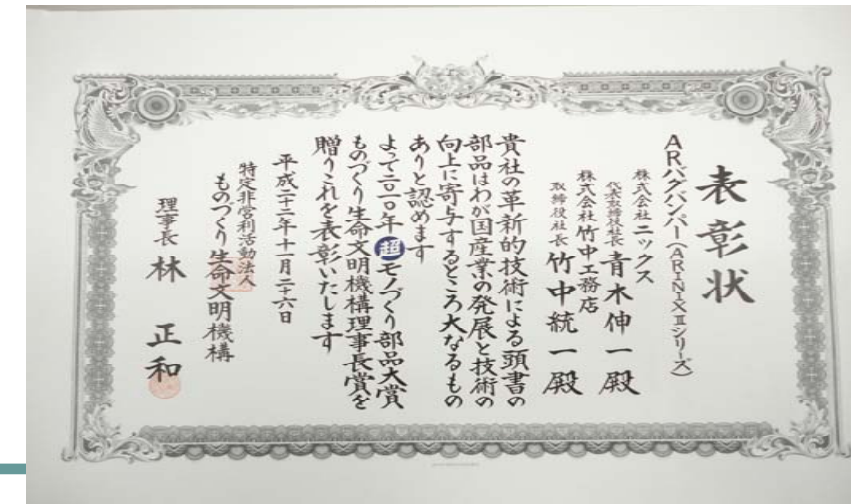 表彰状
ARバグバンパー（ARINIXⅡシリーズ）
株式会社ニックス
代表取締役社長 青木伸一殿
株式会社竹中工務店
取締役社長 竹中統一殿
貴社の革新的技術による頭書の
部品はわが国産業の発展と技術の
向上に寄与するところ大なるもの
ありと認めます
よって二〇一〇年超モノづくり部品大賞
ものづくり生命文明機構理事長賞を
贈りこれを表彰いたします
平成二十二年十一月二十六日
特定非営利活動法人
ものづくり生命文明機構
理事長 林 正和